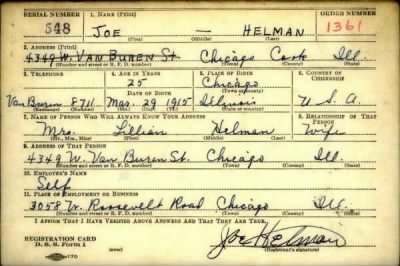 SERIAL NUMBER 1. NAME (Print) ORDER NUMBER
548 JOE — HELMAN 1361
(First) (Middle) (Last)
2. ADDRESS (Print)
4349 W. VAN BUREN St. Chicago Cook Ill.
(Number and street or R. F. D. number) (Town) (County) (State)
3. TELEPHONE 4. AGE IN YEARS 5. PLACE OF BIRTH 6. COUNTRY OF CITIZENSHIP
25 Chicago
DATE OF BIRTH (Town or county)
Van Buren 6711 Mar. 29 1915 Illinois U.S.A.
(Exchange) (No.) (Mo.) (Day) (Yr.) (State or country)
7. NAME OF PERSON WHO WILL ALWAYS KNOW YOUR ADDRESS 8. RELATIONSHIP OF THAT PERSON
Mrs. Lillian Helman Wife
(Mr., Mrs., Miss) (First) (Middle) (Last)
9. ADDRESS OF THAT PERSON
4349 W. Van Buren St. Chicago Ill.
(Number and street or R. F. D. number) (Town) (County) (State)
10. EMPLOYER'S NAME
Self
11. PLACE OF EMPLOYMENT OR BUSINESS
3058 W. Roosevelt Road Chicago Ill.
(Number and street or R. F. D. number) (Town) (County) (State)
I AFFIRM THAT I HAVE VERIFIED ABOVE ANSWERS AND THAT THEY ARE TRUE.
REGISTRATION CARD
D. S. S. Form 1
Joe Helman
(Registrant's signature)